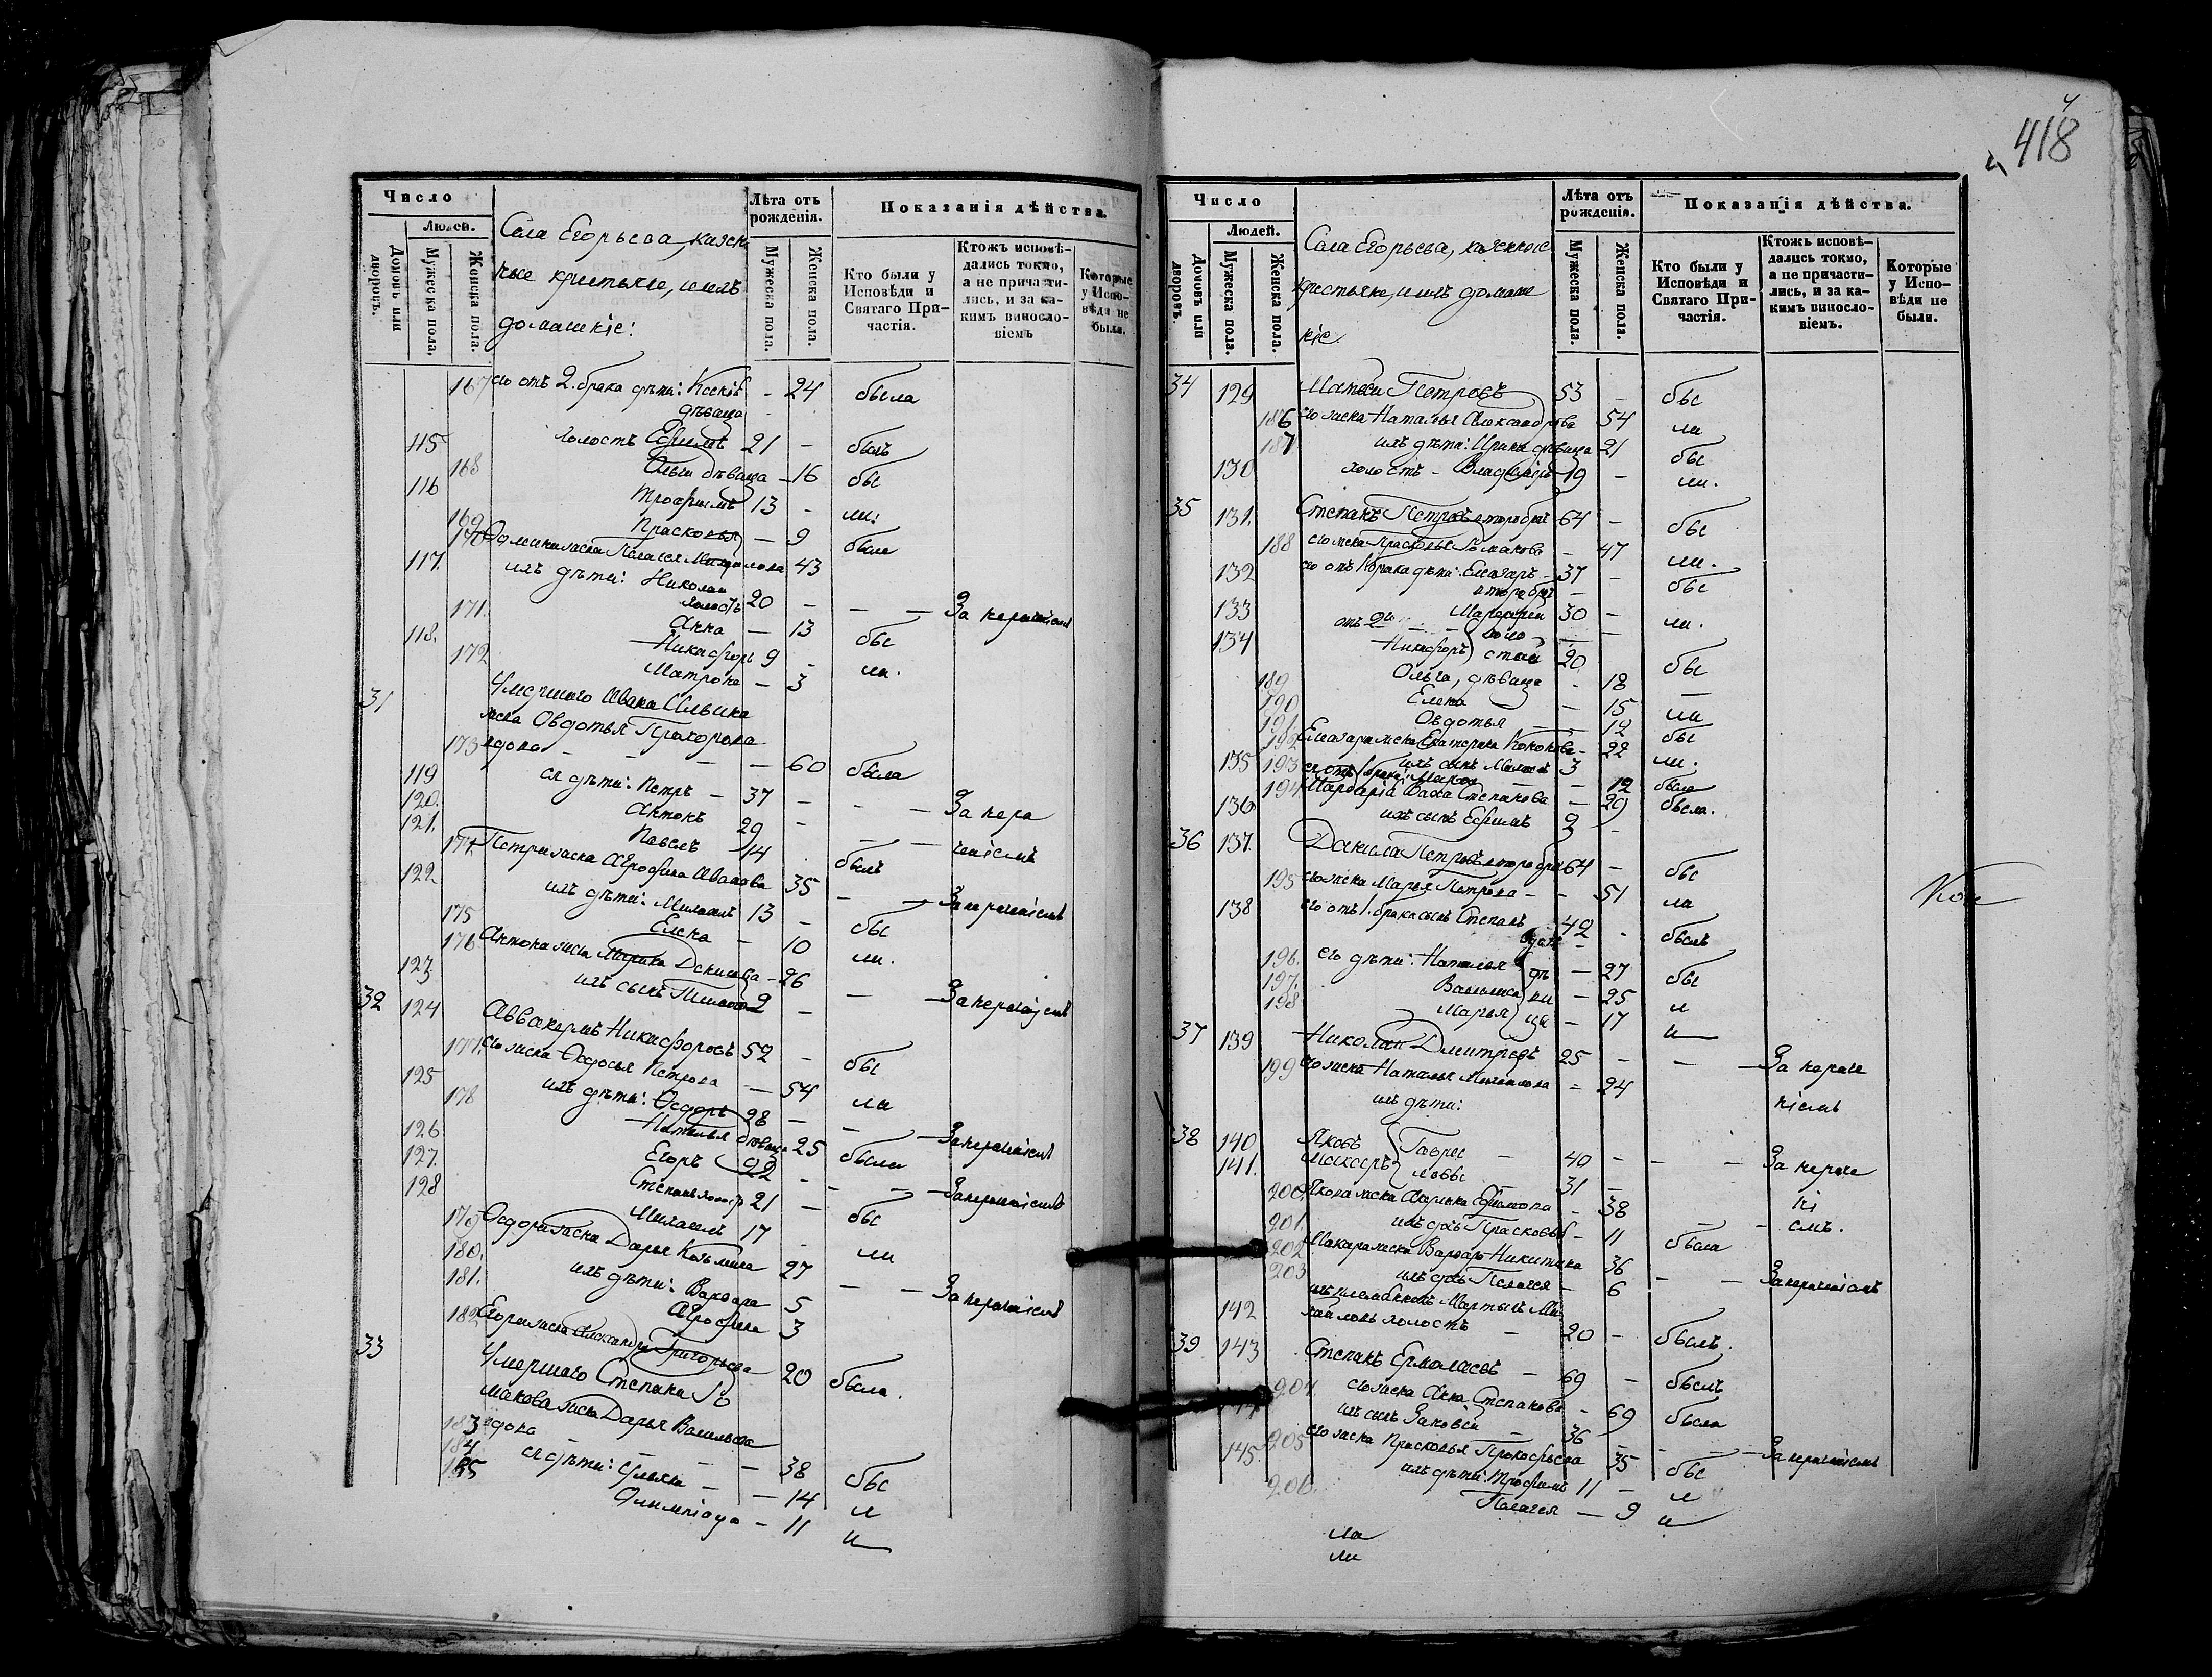 418
Число
Людей.
Домовъ или дворовъ.
Мужеска пола.
Женска пола.
Села Егорьева, казен
ные крестьяне, и ихъ
домашніе:
Лѣта отъ рожденія.
Мужеска пола.
Женска пола.
Показанія дѣйства.
Кто были у Исповѣди и Святаго При-частія.
Ктожъ исповѣ-дались токмо, а не причасти-лись, и за ка-кимъ винословіемъ
Которые у Испо-вѣди не были.
167 его отъ 2. брака дѣти: Ксенія — 24 была
дѣвица
115 холостъ Ефимъ 21 — былъ
168 дѣвица — 16 бы
116 Трофимъ 13 — ли:
169 Прасковья — 9 были
170 жена Пелагея 43
117. ихъ дѣти: Николай
холостъ 20 — — — За нераченіемъ
171. Анна — 13 бы
118. Никифоръ 9 — ли.
172 Матрона — 3
31 Умершаго Ивана Ильина
жена Овдотья Прохорова
173 вдова — — — 60 была
119 ея дѣти: Петръ — 37 — — — За нера
120. Антонъ 29 —
121. Павелъ 14 — — ченіемъ
174. Петра жена Агрофена Иванова 35 былъ
122 ихъ дѣти: Михаилъ 13 — — — За нераченіемъ
175 Елена — 10 бы
176 Антона жена Марина Денисова — 26 ли.
123. ихъ сынъ 2 — — — За нераченіемъ
32 124 Аввакумъ Никифоровъ 52 — бы
177. его жена Ѳедосья Петрова — 54 ли
125 ихъ дѣти: Ѳедоръ 28 — — — За нераченіемъ
178 Наталья дѣвица 25 была
126 Егоръ 22 — — — За нераченіемъ
127. Степанъ холостъ 21 — бы
128 Михаилъ 17 — ли
179 Ѳедора жена Дарья Козьмина 27 — — За нераченіемъ
180. ихъ дѣти: Варвара 5
181. Агрофена 3
182 Егора жена Александра Григорьева — 20 была.
33 Умершаго Степана Ро
манова жена Дарья Васильева
183 вдова — — — 38 бы
184 ея дѣти: — 14 л
185 Олимпіада — 11 и
Число
Людей.
Домовъ или дворовъ.
Мужеска пола.
Женска пола.
Села Егорьева, казенные
крестьяне, и ихъ домаш
ніе.
Лѣта отъ рожденія.
Мужеска пола.
Женска пола.
Показанія дѣйства.
Кто были у Исповѣди и Святаго При-частія.
Ктожъ исповѣ-дались токмо, а не причасти-лись, и за ка-кимъ винословіемъ.
Которые у Испо-вѣди не были.
34 129 Матвей Петровъ 53 — бы
186 его жена Наталья Александрова 54 ли
187 ихъ дѣти: Ирина дѣвица 21 бы
130 холостъ — Владиміръ 19 — ли.
35 131. Степанъ Петровъ второбрач 64 — бы
188 его жена Прасковья Романова — 47 ли.
132 его отъ 1 брака дѣти: Елизаръ — 37 — бы
второбрач —
133 отъ 2го Мардарій 30 — ли.
134 Никифоръ холостые 20 бы
189 Ольга, дѣвица — 18
190 Елена — 15 ли
191. Овдотья — 12 бы
192 Елизара жена Екатерина Кононова — 22 ли.
135 ихъ сынъ 3
193 ея отъ 1 брака — 12 была
194. Мардарія жена Степанова — 29 была.
136 ихъ сынъ Ефимъ 2 —
36 137. Данила Петровъ второбрач 64 — бы
195 его жена Марья Петрова — — 51 ли
138 его отъ 1. брака сынъ Степанъ 42 — былъ
вдовъ
196. его дѣти: Наталья дѣ — 27 бы
197. Василиса ви — 25 л
198 Марья цы — 17 и
37 139 Николай Дмитревъ 25 — — — За нераче
199 его жена Наталья Михайлова — 24
ихъ дѣти: ніемъ
38 140 Яковъ Гаври — 40 — — — За нераче
141. Макаръ ловы — 31 —
200. Якова жена Ефимова — 38 ні
201. ихъ дочь Прасковья — 11 была — емъ.
202 Макара жена Варвара Никитина 36
203 ихъ дочь Пелагея — 6 — — За нераченіемъ
ихъ племянникъ Мартынъ Ми
142 хайловъ холостъ — 20 — былъ.
39 143 Степанъ Ермолаевъ — 69 — былъ
204. его жена Анна Степанова — 69 была
144 ихъ сынъ Зиновій — 36 — — — За нераченіемъ
205 его жена Прасковья Прокофьева 35 бы
145. ихъ дѣти: Трофимъ 11 — л
206. Пелагея — 9 и
ла
ли